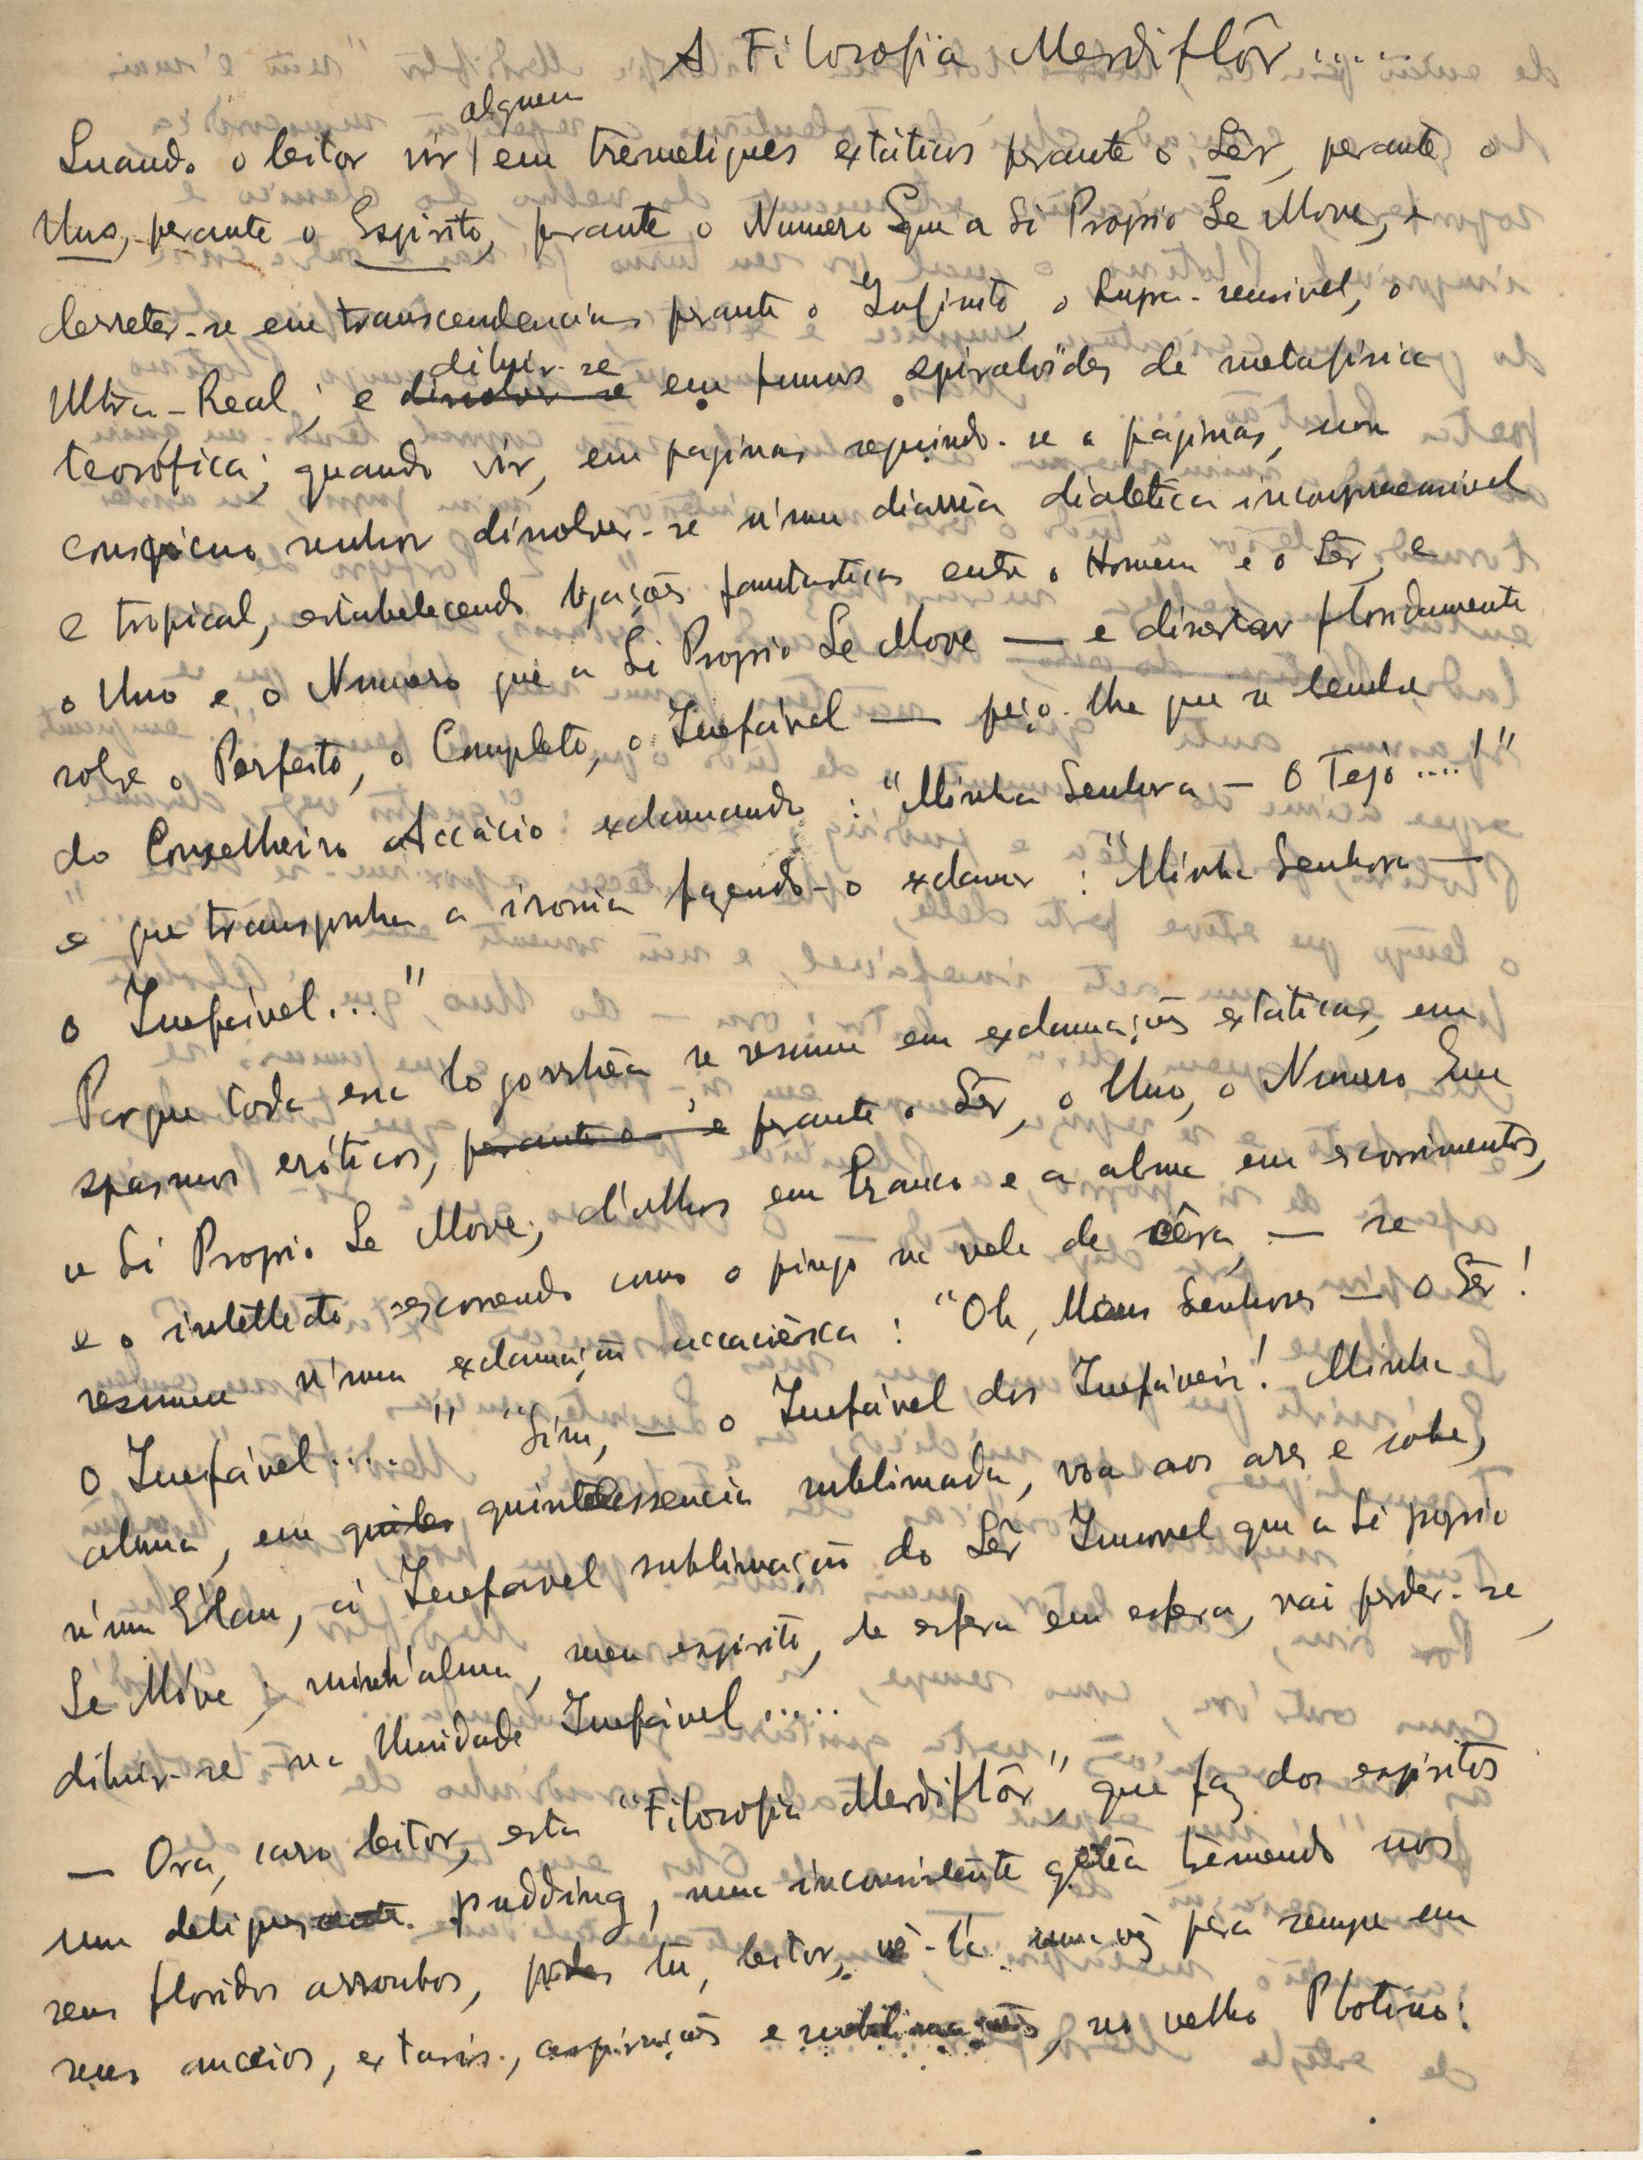 A Filosofia Merdiflôr.....
alguem
Quando o leitor vir em tremeliques extáticos perante o Sêr, perante o
Uno, perante o Espirito, perante o Numero Que a Si Proprio Se Move, e
derreter-se em transcendencias perante o Infinito, o Supra-sensivel, o
diluir-se
Ultra-Real; e dissolver-se em fumos espiraloïdes de metafisica
teosófica; quando vir, em paginas seguindo-se a páginas, um
conspícuo senhor dissolver-se n'uma diarrêa dialética incompreensivel
e tropical, estabelecendo ligações fantasticas entre o Homem e o Sêr, e
o Uno e o Numero que a Si Proprio Se Move — e dissertar floridamente
sobre o Perfeito, o Completo, o Inefável — peço-lhe que se lembre
do Conselheiro Accácio exclamando: "Minha Senhora — O Tejo....!"
e que transponha a ironia fazendo-o exclamar: "Minha Senhora —
o Inefável..."
Porque toda essa logorrhêa se resume em exclamações extáticas, em
spasmos eróticos, perante o e perante o Sêr, o Uno, o Numero Que
a Si Proprio Se Move; d'olhos em branco e a alma em escorrimentos,
e o intellecto escorrendo como o pingo na vela de cêra, — se
resumem n'uma exclamação accacièsca: "Oh, Meus Senhores — O Sêr!
O Inefável...." "Sim, — o Inefável dos Inefáveis! Minha
alma, em quintessencia sublimada, vôa aos ares e sobe,
n'um Élan, á Inefavel sublimação do Sêr Imovel que a Si proprio
Se Móve; minh'alma, meu espirito, de esfera em esfera, vai perder-se,
diluir-se na Unidade Inefável.....
— Ora, caro leitor, esta "Filosofia Merdiflôr", que faz dos espiritos
um deliquescente pudding, uma inconsistente gelêa tremendo nos
seus floridos arroubos, podes tu, leitor, vê-la uma vez para sempre em
seus anceios, extasis, aspirações e sublimações, no velho Plotino: